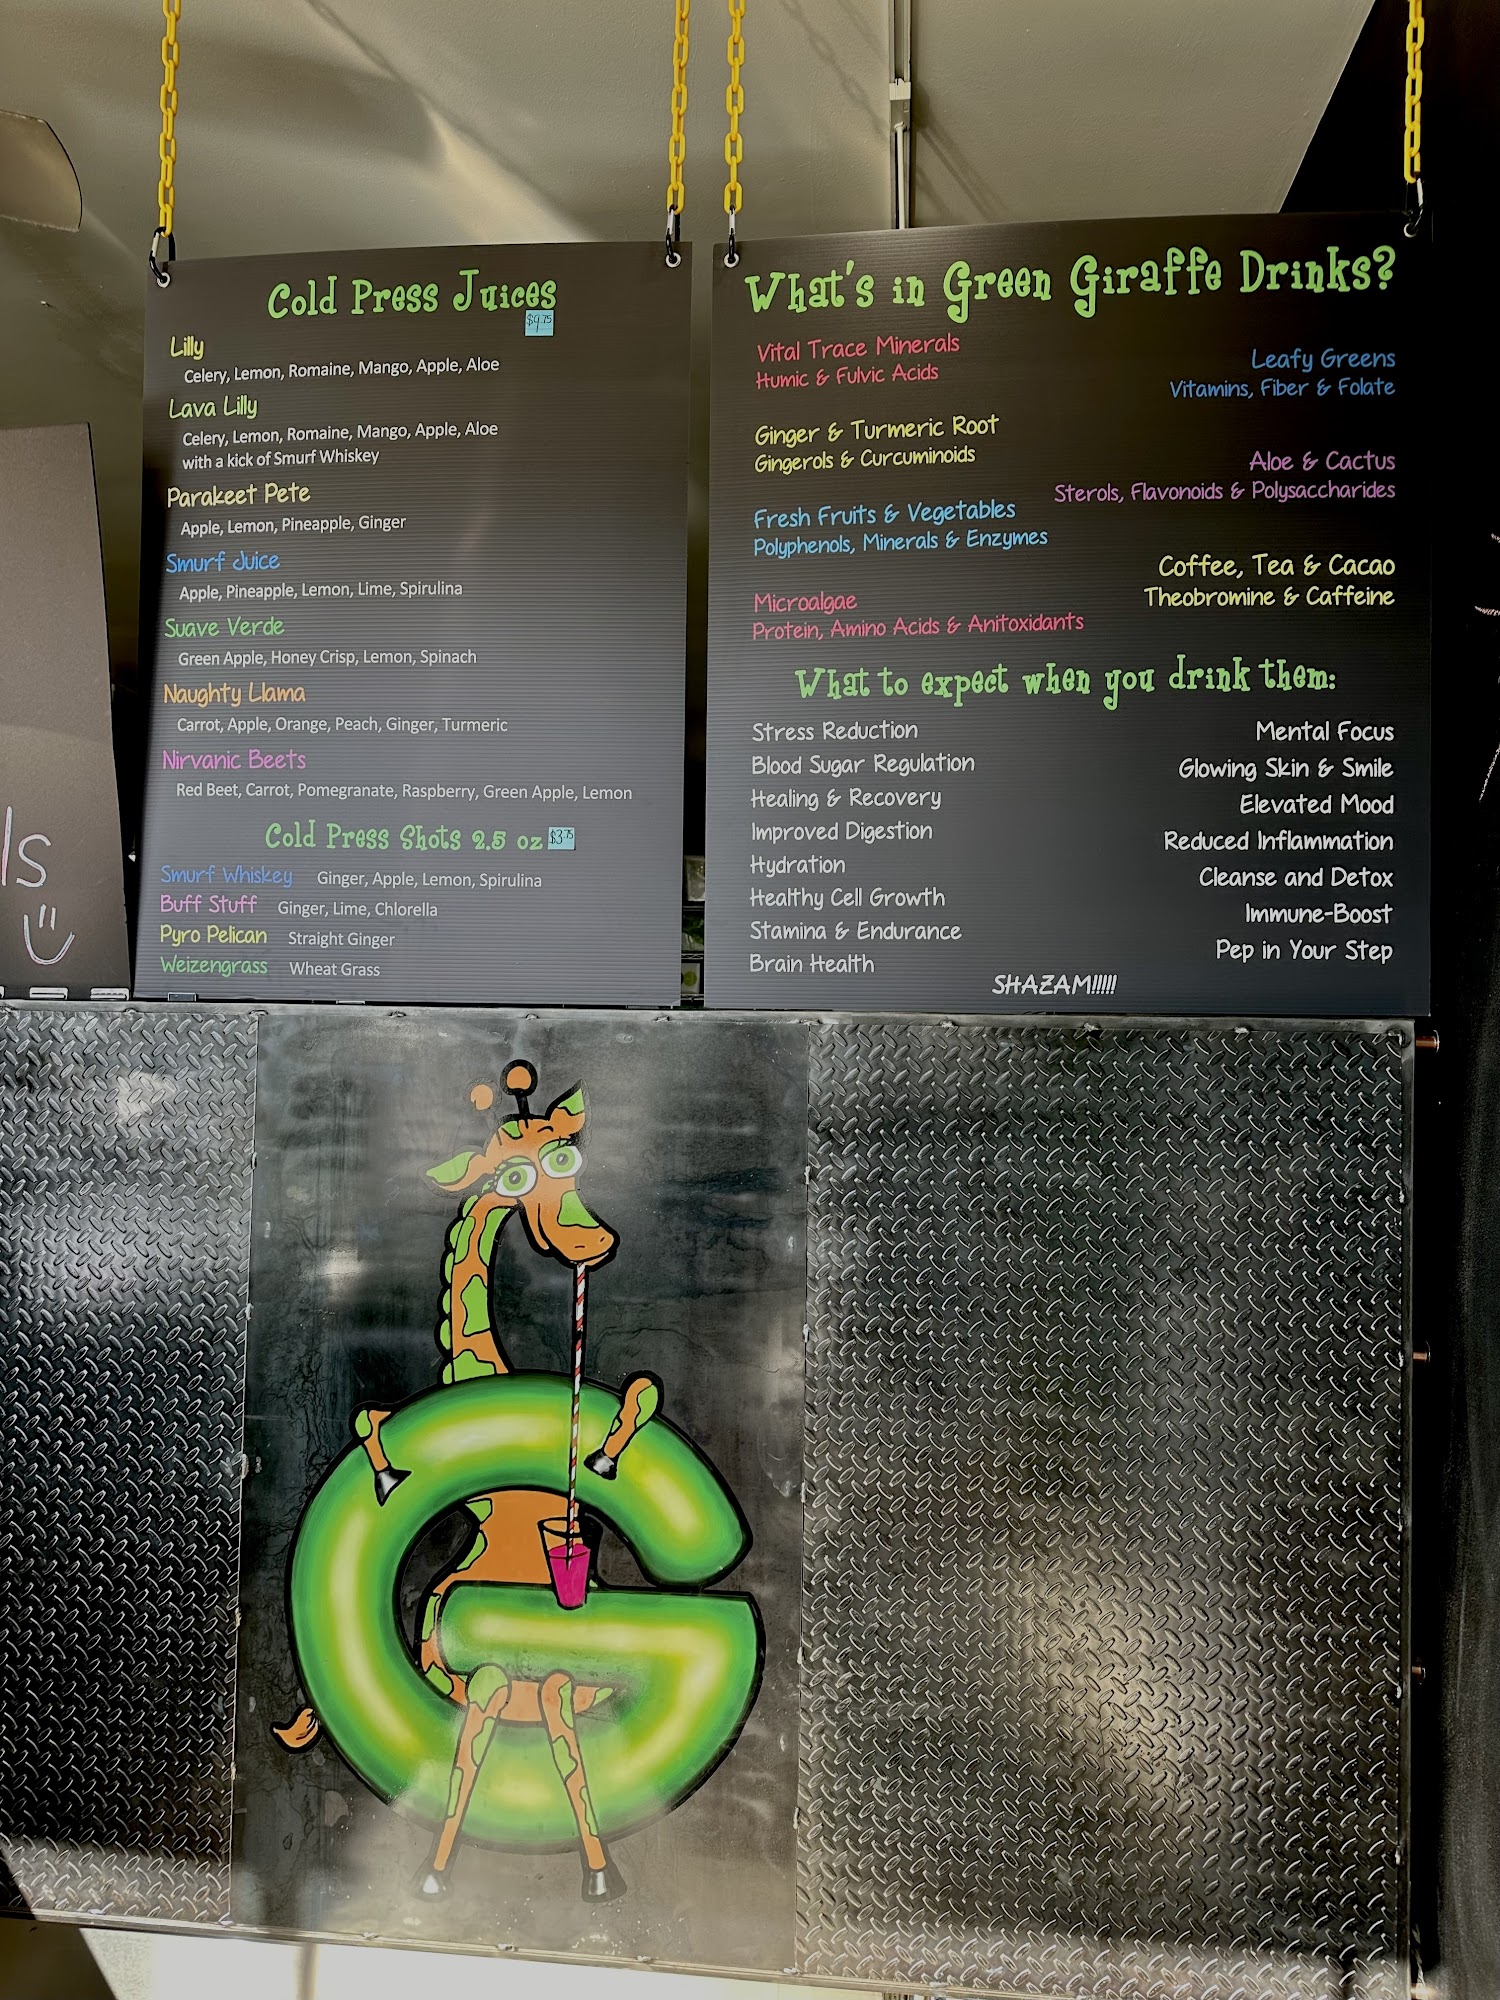 Cold Press Juices
$9.75
Lilly
Celery, Lemon, Romaine, Mango, Apple, Aloe
Lava Lilly
Celery, Lemon, Romaine, Mango, Apple, Aloe
with a kick of Smurf Whiskey
Parakeet Pete
Apple, Lemon, Pineapple, Ginger
Smurf Juice
Apple, Pineapple, Lemon, Lime, Spirulina
Suave Verde
Green Apple, Honey Crisp, Lemon, Spinach
Naughty Llama
Carrot, Apple, Orange, Peach, Ginger, Turmeric
Nirvanic Beets
Red Beet, Carrot, Pomegranate, Raspberry, Green Apple, Lemon
Cold Press Shots 2.5 oz $3.75
Smurf Whiskey Ginger, Apple, Lemon, Spirulina
Buff Stuff Ginger, Lime, Chlorella
Pyro Pelican Straight Ginger
Weizengrass Wheat Grass
What's in Green Giraffe Drinks?
Vital Trace Minerals
Humic & Fulvic Acids
Leafy Greens
Vitamins, Fiber & Folate
Ginger & Turmeric Root
Gingerols & Curcuminoids
Aloe & Cactus
Sterols, Flavonoids & Polysaccharides
Fresh Fruits & Vegetables
Polyphenols, Minerals & Enzymes
Coffee, Tea & Cacao
Theobromine & Caffeine
Microalgae
Protein, Amino Acids & Anitoxidants
What to expect when you drink them:
Stress Reduction
Blood Sugar Regulation
Healing & Recovery
Improved Digestion
Hydration
Healthy Cell Growth
Stamina & Endurance
Brain Health
Mental Focus
Glowing Skin & Smile
Elevated Mood
Reduced Inflammation
Cleanse and Detox
Immune-Boost
Pep in Your Step
SHAZAM!!!!!
G